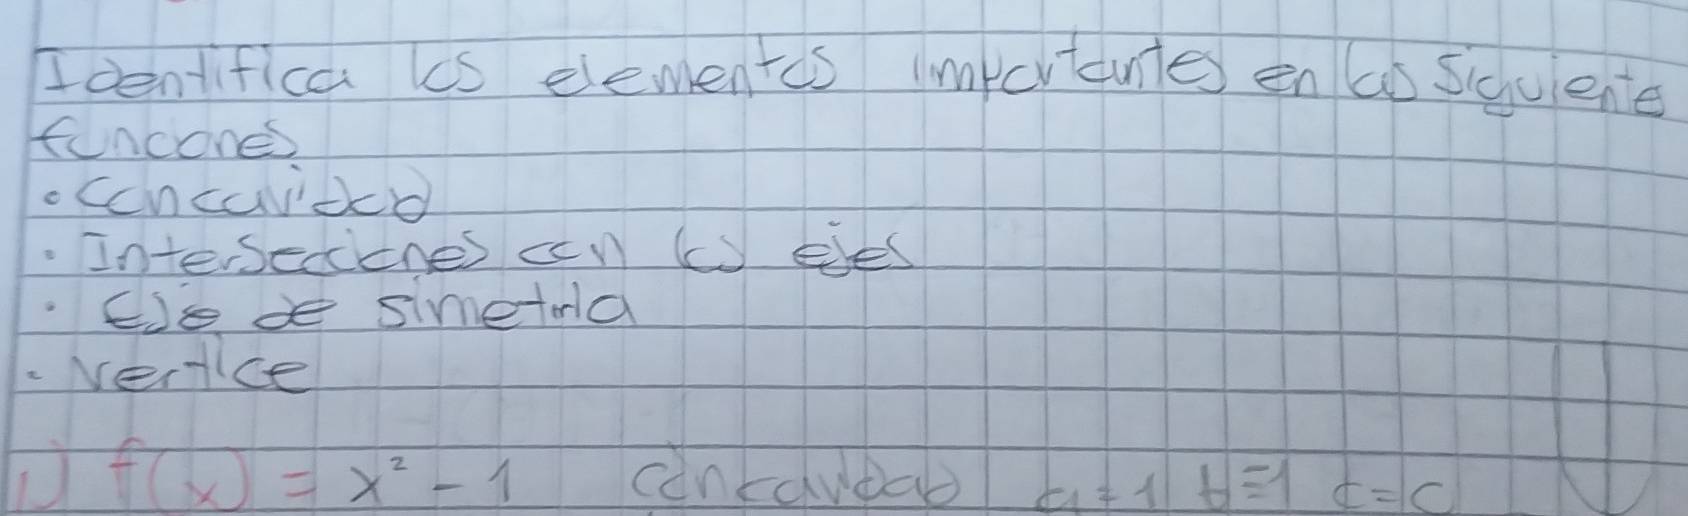 Identifica los elementos importantes en las siguiente
funcones
• Concavidad
• Intersecciones con los ejes
• Eje de simetria
• Vertice
1) f(x) = x² - 1 Concavidad a=1 b=1 c=0